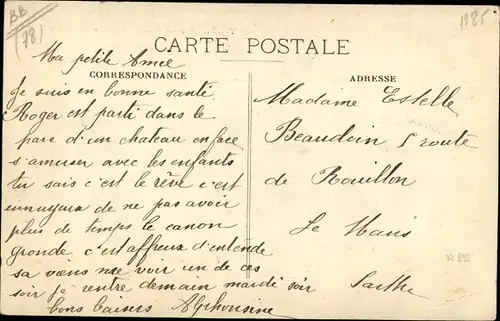 BB
(78)
1385
CARTE POSTALE
CORRESPONDANCE
ADRESSE
Ma petite Amie
Je suis en bonne santé
Roger est parti dans le
parc d'un chateau en face
s'amuser avec les enfants
tu sais c'est le rêve c'est
ennuyeux de ne pas avoir
plus de temps le canon
gronde c'est affreux d'entende
sa voens nee voir un de ces
soir je rentre demain mardi soir
bons baisers Alphonsine
Madame Estelle
Beaudoin 5 route
de Rouillon
Le Mans
Sarthe
*BB